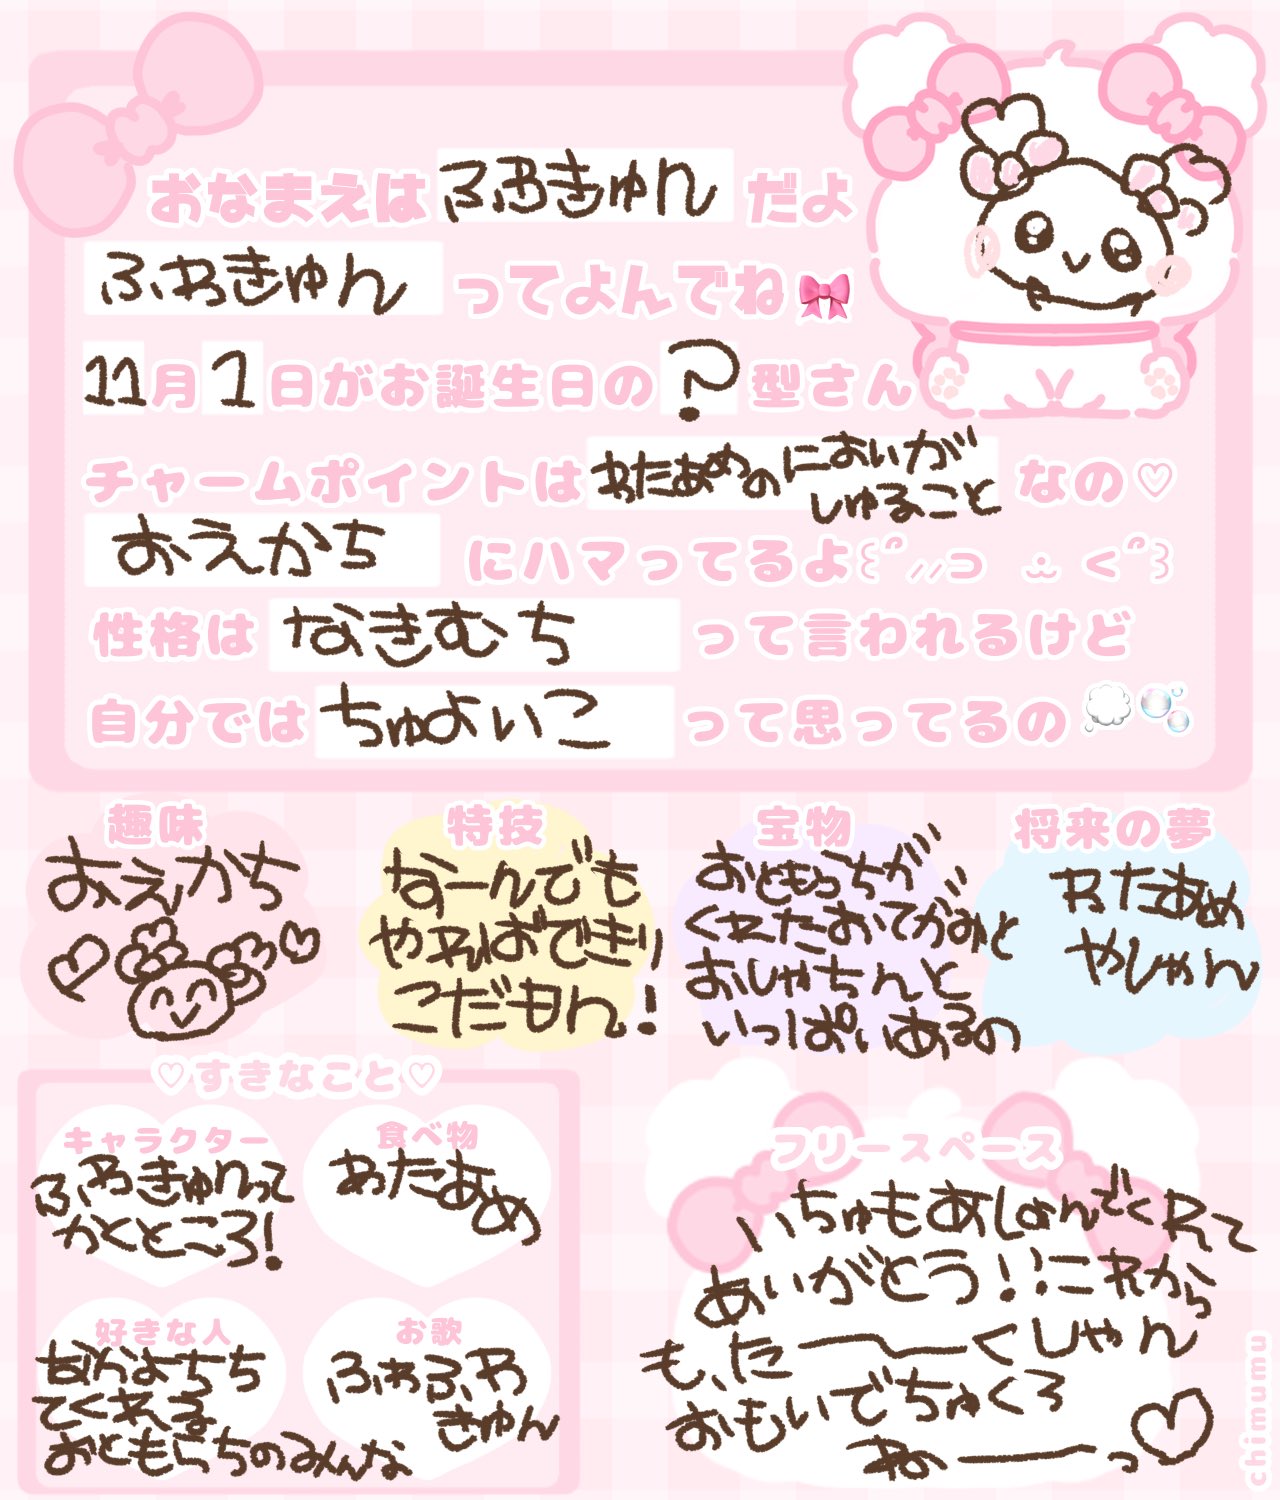 おなまえは ふわきゅん だよ
ふわきゅん ってよんでね
11月1日がお誕生日の?型さん
チャームポイントは わたあめのにおいが
しゅること なの♡
おえかち にハマってるよ
性格は なきむち って言われるけど
自分では ちゅよいこ って思ってるの
趣味
おえかち
特技
なーんでも
やればできり
こだもん!
宝物
おともっちが
くれたおてがみと
おしゃちんと
いっぱいあるの
将来の夢
わたあめ
やしゃん
♡すきなこと♡
キャラクター
ふわきゅんって
かくところ!
食べ物
わたあめ
好きな人
なかよちち
てくれる
おともらちのみんな
お歌
ふわふわ
きゅん
フリースペース
いちゅもあしょんでくれて
あいがとう!!これから
も、たーーくしゃん
おもいでちゅくろ
ねーーっ♡
chimumu